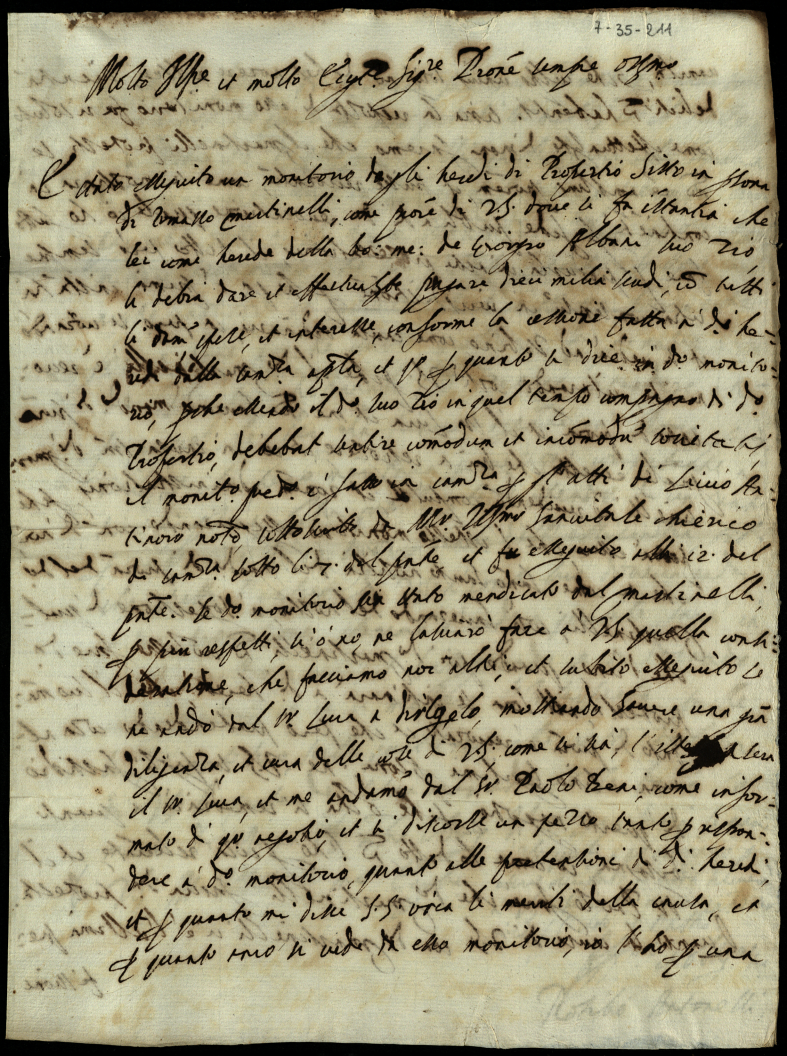 7-35-211
Molto Ill.re et molto Ecc.te Sig.re Prone sempre oss.mo
È stato esseguito un monitorio dagli heredi di Propertio Sitto in persona
di Tomasso Martinelli, come prore di VS. dove si fa instantia che
lei come herede della bo: me: de Giorgio Albani suo zio
li debia dare et effectualmte pagare dieci milia scudi, con tutti
li dam spese, et interesse, conforme la cessione fatta a d.i he-
redi dalla cam.ra ap.ta, et p.o per quanto si dice in d.o monito-
rio, perche essendo il d.o suo zio in quel tempo compagno di d.o
Propertio, debebat sentire comodum et incomodum societatis
il monit.o pred.o è fatto in cam.ra per gl'atti di Livio
notro sottoscritto da Mr Sanvitale chierico
di camra sotto li 7. del pnte, et fu esseguito alli 12. del
pnte. Se d.o monitorio sia stato mendicato dal Martinelli,
per piu respetti, si ò no, ne lassarò fare à VS quella consi-
deratione, che facciamo noi altri, et subito esseguito se
ne andò dal Sr Luca a dirglelo, mostrando havere una gra
diligenza, et cura delle cose di VS. come si hà, l'istessa sera
il Sr Luca, et me andamo dal Sr Paolo, come infor-
mato di qto negotio, et si discorse un pezzo tanto per respon-
dere à d.o monitorio, quanto alle pretentioni di d.i heredi,
et per quanto mi disse S.S. circa li meriti della causa, et
per quanto anco si vede da esso monitorio, io l'ho per una